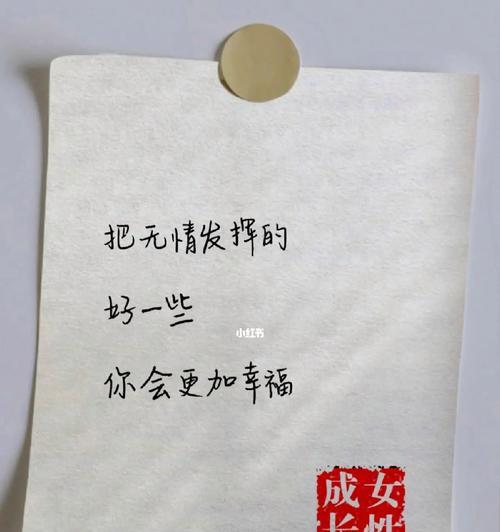 把无情发挥的
好一些
小红书
你会更加幸福
女性
成长